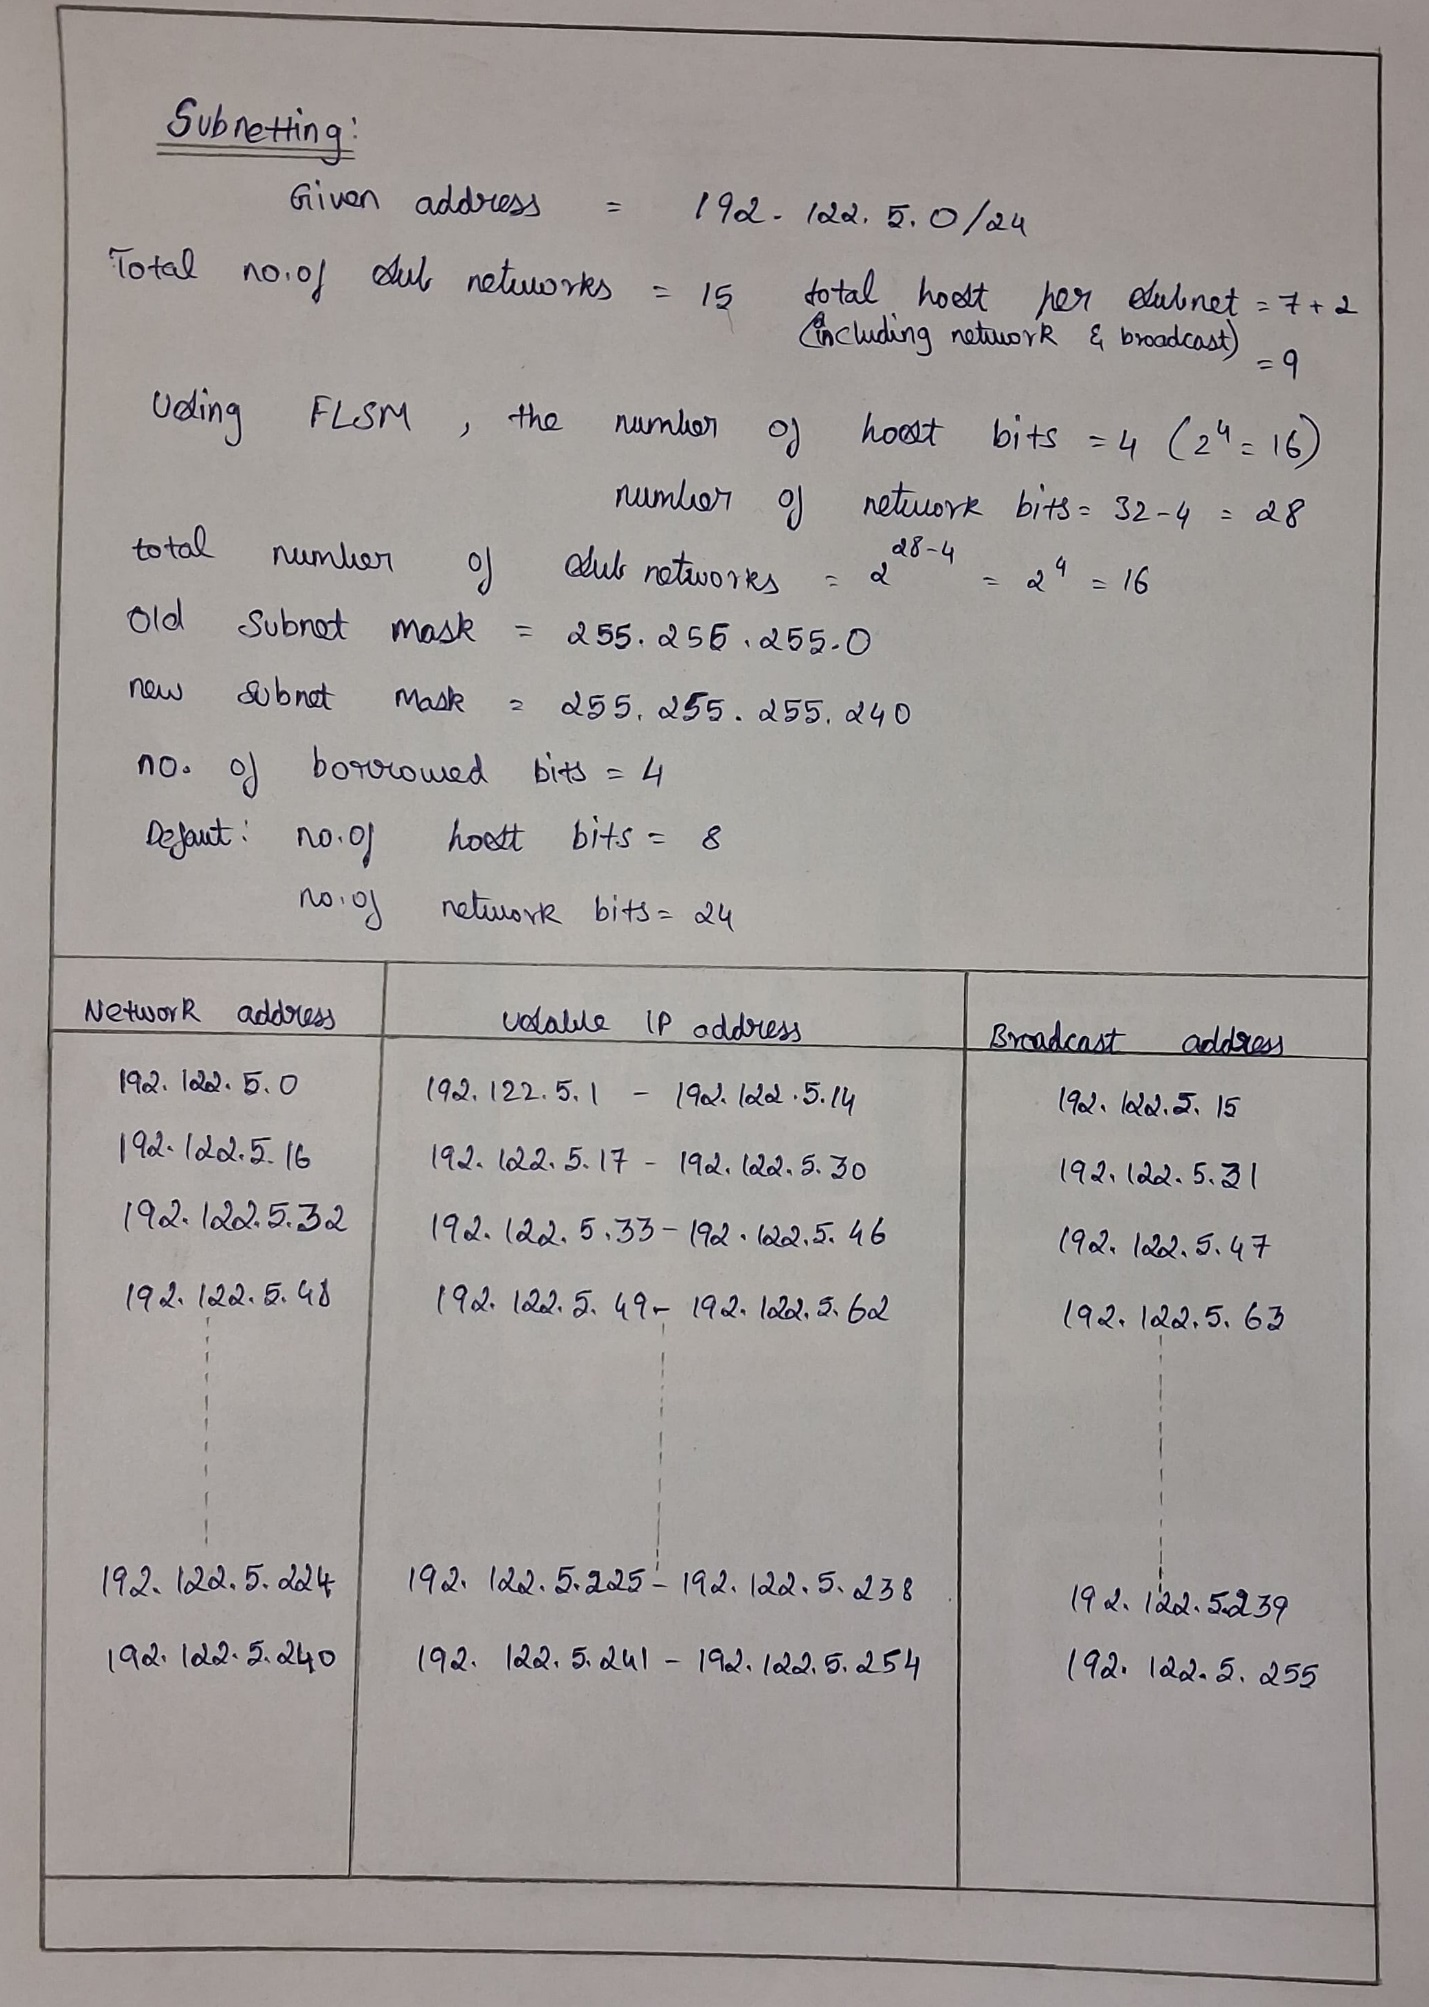 Subnetting:
Given address = 192. 122. 5. 0/24
Total no. of sub networks = 15 total host per subnet = 7 + 2
(including network & broadcast) = 9
Using FLSM , the number of host bits = 4 (2^4 = 16)
number of network bits = 32 - 4 = 28
total number of sub networks = 2^28-4 = 2^4 = 16
Old Subnet mask = 255. 255. 255. 0
new subnet Mask = 255. 255. 255. 240
no. of borrowed bits = 4
Defaut: no. of host bits = 8
no. of network bits = 24
Network address usable IP address Broadcast address
192. 122. 5. 0 192. 122. 5. 1 - 192. 122. 5. 14 192. 122. 5. 15
192. 122. 5. 16 192. 122. 5. 17 - 192. 122. 5. 30 192. 122. 5. 31
192. 122. 5. 32 192. 122. 5. 33 - 192. 122. 5. 46 192. 122. 5. 47
192. 122. 5. 48 192. 122. 5. 49 - 192. 122. 5. 62 192. 122. 5. 63
192. 122. 5. 224 192. 122. 5. 225 - 192. 122. 5. 238 192. 122. 5. 239
192. 122. 5. 240 192. 122. 5. 241 - 192. 122. 5. 254 192. 122. 5. 255